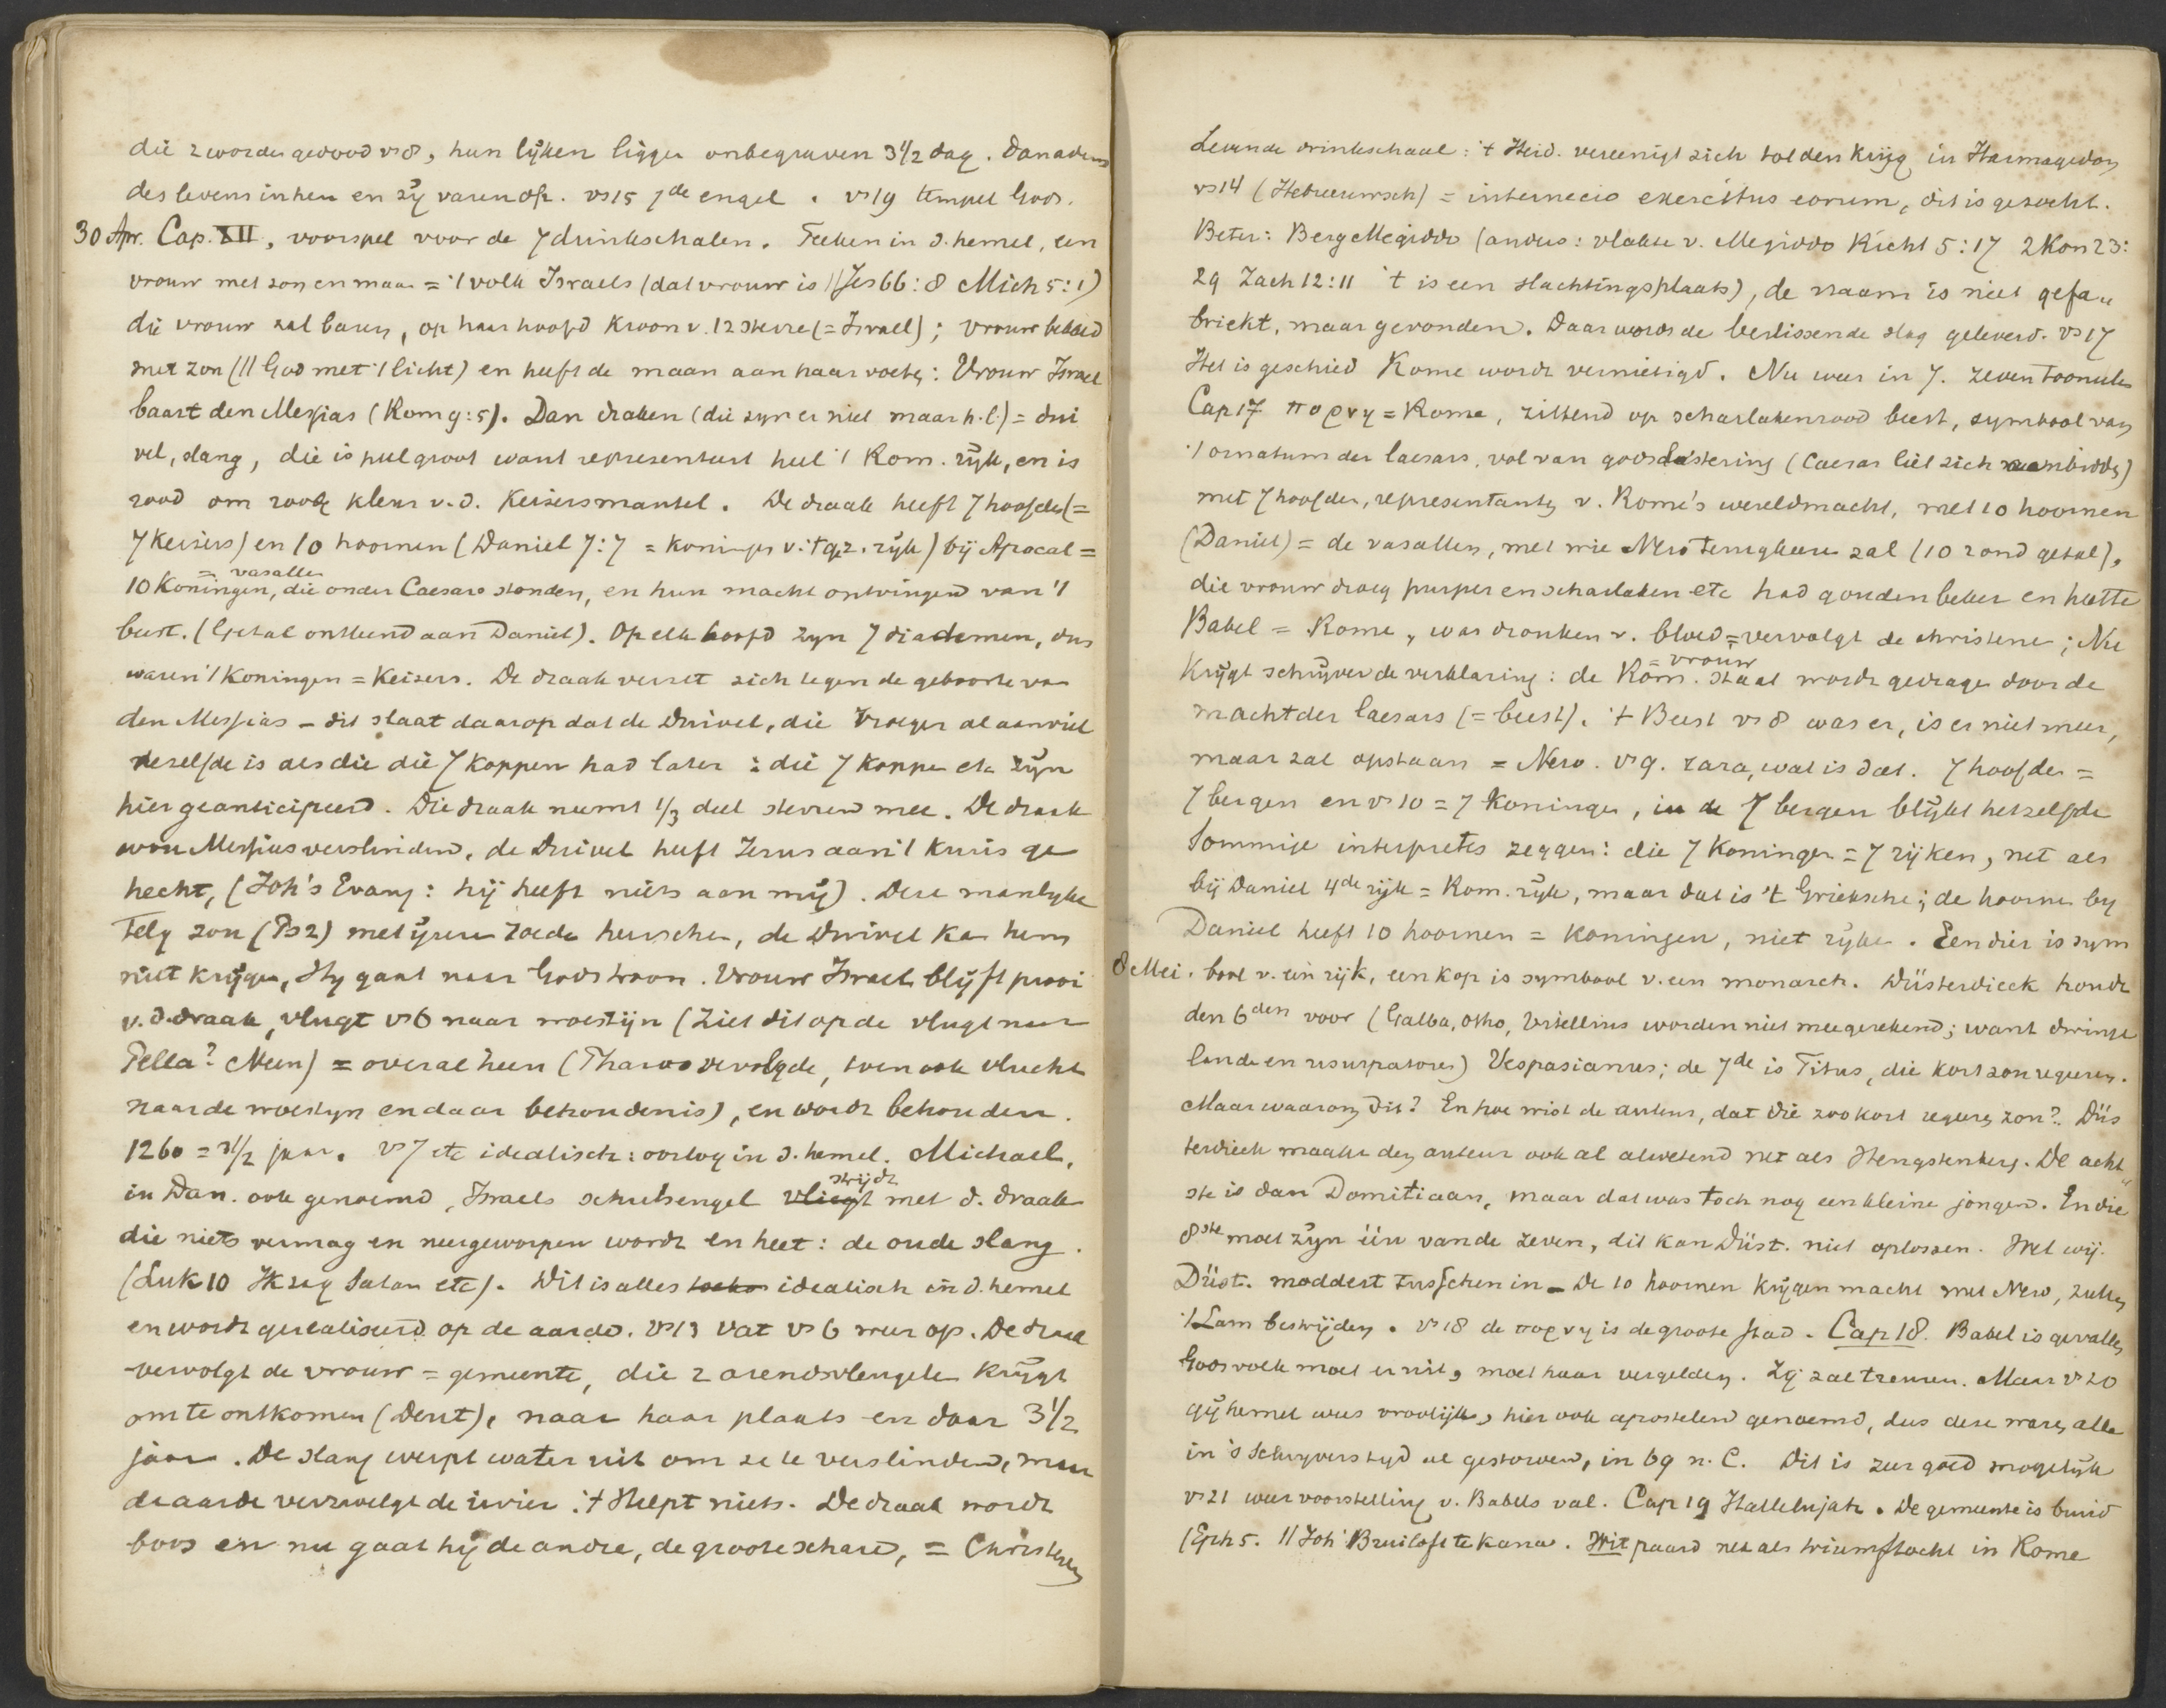 die 2 worden gedood vs 8, hun lijken liggen onbegraven 3 1/2 dag. Dan adem
des levens in hen en zij varen op. vs 15 7de engel. vs 19 tempel Gods.
30 Apr. Cap. XII, voorspel voor de 7 drinkschalen. Teeken in d. hemel, een
vrouw met zon en maan = 't volk Israels (dat vrouw is || Jes 66:8 Mich 5:1)
die vrouw zal baren, op haar hoofd kroon v. 12 sterren (= Israel); vrouw bekleed
met zon (|| God met 't licht) en heeft de maan aan haar voeten: Vrouw Israel
baart den Messias (Rom 9:5). Dan draken (die zijn er niet maar h.l.) = dui
vel, slang, die is heel groot want representeert heel 't Rom. rijk, en is
rood om roode kleur v.d. keizersmantel. De draak heeft 7 hoofden (=
7 keizers) en 10 hoornen (Daniel 7:7 = koningen v. 't gez. rijk) bij Apocal =
= vasallen
10 Koningen, die onder Caesars stonden, en hun macht ontvingen van 't
beest. (Getal ontleend aan Daniel). Op elk hoofd zijn 7 diademen, dus
waren 't Koningen = Keizers. De draak verzet zich tegen de geboorte van
den Messias - dit slaat daarop dat de Duivel, die vroeger al aanviel
dezelfde is als die die 7 koppen had later : die 7 koppen etc zijn
hier geanticipeerd. Die draak neemt 1/3 deel sterren mee. De draak
wou Messias verslinden, de Duivel heeft Jezus aan 't kruis ge
hecht, (Joh's Evang: hij heeft niets aan mij). Deze manlijke
zou (Ps 2) met ijzeren roede heerschen, de Duivel kan hem
niet krijgen, Hij gaat naar Gods troon. Vrouw Israel blijft prooi
v. d. draak, vlugt vs 6 naar woestijn (Ziet dit op de vlugt naar
Pella? Neen) = overal heen (Pharao vervolgde, toen ook vlucht
naar de woestijn en daar behoudenis), en wordt behouden.
1260 = 3 1/2 jaar. vs 7 etc idealisch: oorlog in d. hemel. Michael,
in Dan. ook genoemd, Israels schutsengel vliegt strijdt met d. draak
die niets vermag en neergeworpen wordt en heet: de oude slang.
(Luk 10 Ik zag Satan etc). Dit is alles idealisch in d. hemel
en wordt gerealiseerd op de aarde. vs 13 vat vs 6 weer op. De draak
vervolgt de vrouw = gemeente, die 2 arendsvleugelen krijgt
om te ontkomen (Deut), naar haar plaats en daar 3 1/2
jaar. De slang werpt water uit om ze te verslinden, maar
de aarde verzwelgt de rivier : 't Helpt niets. De draak wordt
boos en nu gaat hij de andre, de groote schare, = Christenen
Levende drinkschaal : 't Heid. vereenigt zich tot den krijg in Harmagedon
vs 14 (Hebreeuwsch) = internecio exercitus eorum, dit is gezocht.
Beter: Berg Megiddo (anders: vlakte v. Megiddo Richt 5:17 2 Kon 23:
29 Zach 12:11 't is een slachtingsplaats), de naam is niet gefa
briekt, maar gevonden. Daar wordt de beslissende slag geleverd. vs 17
Het is geschied Rome wordt vernietigd. Nu weer in 7. Zeven tooneelen
Cap 17 πορνη = Rome, zittend op scharlakenrood beest, symbool van
't ornatum der Caesars, vol van godslastering (Caesar liet zich aanbidden)
met 7 hoofden, representanten v. Rome's wereldmacht, met 10 hoornen
(Daniel) = de vasallen, met wie Nero terugkeeren zal (10 rond getal),
die vrouw droeg purper en scharlaken etc had gouden beker en heette
Babel = Rome, was dronken v. bloed = vervolgt de christenen; Nu
= vrouw
Krijgt schrijver de verklaring: de Rom. Staat wordt gedragen door de
macht der Caesars (= beest). 't Beest vs 8 was er, is er niet meer,
maar zal opstaan = Nero. vs 9. zara, wat is dat. 7 hoofden =
7 bergen en vs 10 = 7 Koningen, in de 7 bergen blijkt hetzelfde
Sommige interpretes zeggen: die 7 Koningen = 7 rijken, net als
bij Daniel 4de rijk = Rom. rijk, maar dat is 't Grieksche; de hoornen bij
Daniel heeft 10 hoornen = koningen, niet rijken. Een dier is sym
8 Mei. bool v. een rijk, een kop is symbool v. een monarch. Düsterdieck houdt
den 6den voor (Galba, Otho, Vitellius worden niet meegerekend; want dwinge
landen en usurpatores) Vespasianus; de 7de is Titus, die kort zou regeren.
Maar waarom dit? En hoe wist de auteur, dat die zoo kort regeren zou? Düs
terdieck maakt den auteur ook al alwetend net als Hengstenberg. De acht
ste is dan Domitiaan, maar dat was toch nog een kleine jongen. En die
8ste moet zijn één van de zeven, dit kan Düst. niet oplossen. Wel wij.
Düst. moddert tusschen in - De 10 hoornen krijgen macht met Nero, zullen
't Lam bestrijden. vs 18 de πορνη is de groote stad. Cap 18. Babel is gevallen
Gods volk moet er uit, moet haar vergelden. Zij zal treuren. Maar vs 20
gij hemel wees vroolijk, hier ook apostelen genoemd, dus deze waren alle
in 's Schrijvers tijd al gestorven, in 69 n. C. Dit is zeer goed mogelijk
vs 21 weer voorstelling v. Babels val. Cap 19 Hallelujah. De gemeente is bruid
(Eph 5. || Joh Bruiloft te Kana. Wit paard net als triumftocht in Rome